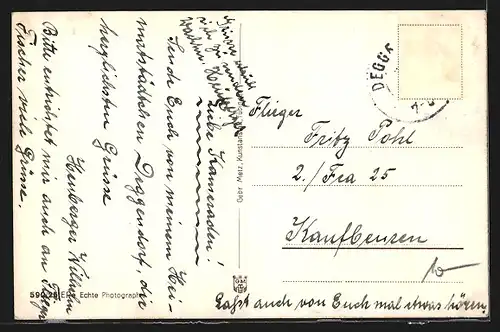 Liebe Kameraden!
Sende Euch von meinem Hei-
matstädtchen Deggendorf, die
herzlichsten Grüsse
Heuberger Wilhelm
Bitte entrichtet mir auch an
Fischer viele Grüsse.
Gebr. Metz, Kunstan
Echte Photographie
DEGGE
Flieger
Fritz Pohl
2./Fea 25
Kaufbeuren
Lasst auch von Euch mal etwas hören